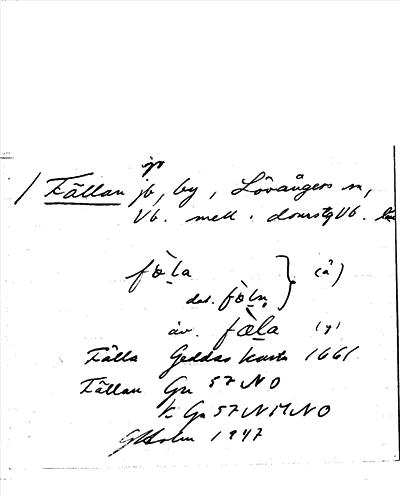 Fällan jb, by, Lövångers sn,
Vb. mell. domsg Vb. län
fö̀la (ä)
dat. fö̀ln
äv. fæ̀la (y)
Fälla Geddas karta 1661
Fällan Gn 57 NO
k Gn 57 NMNO
GHolm 1947